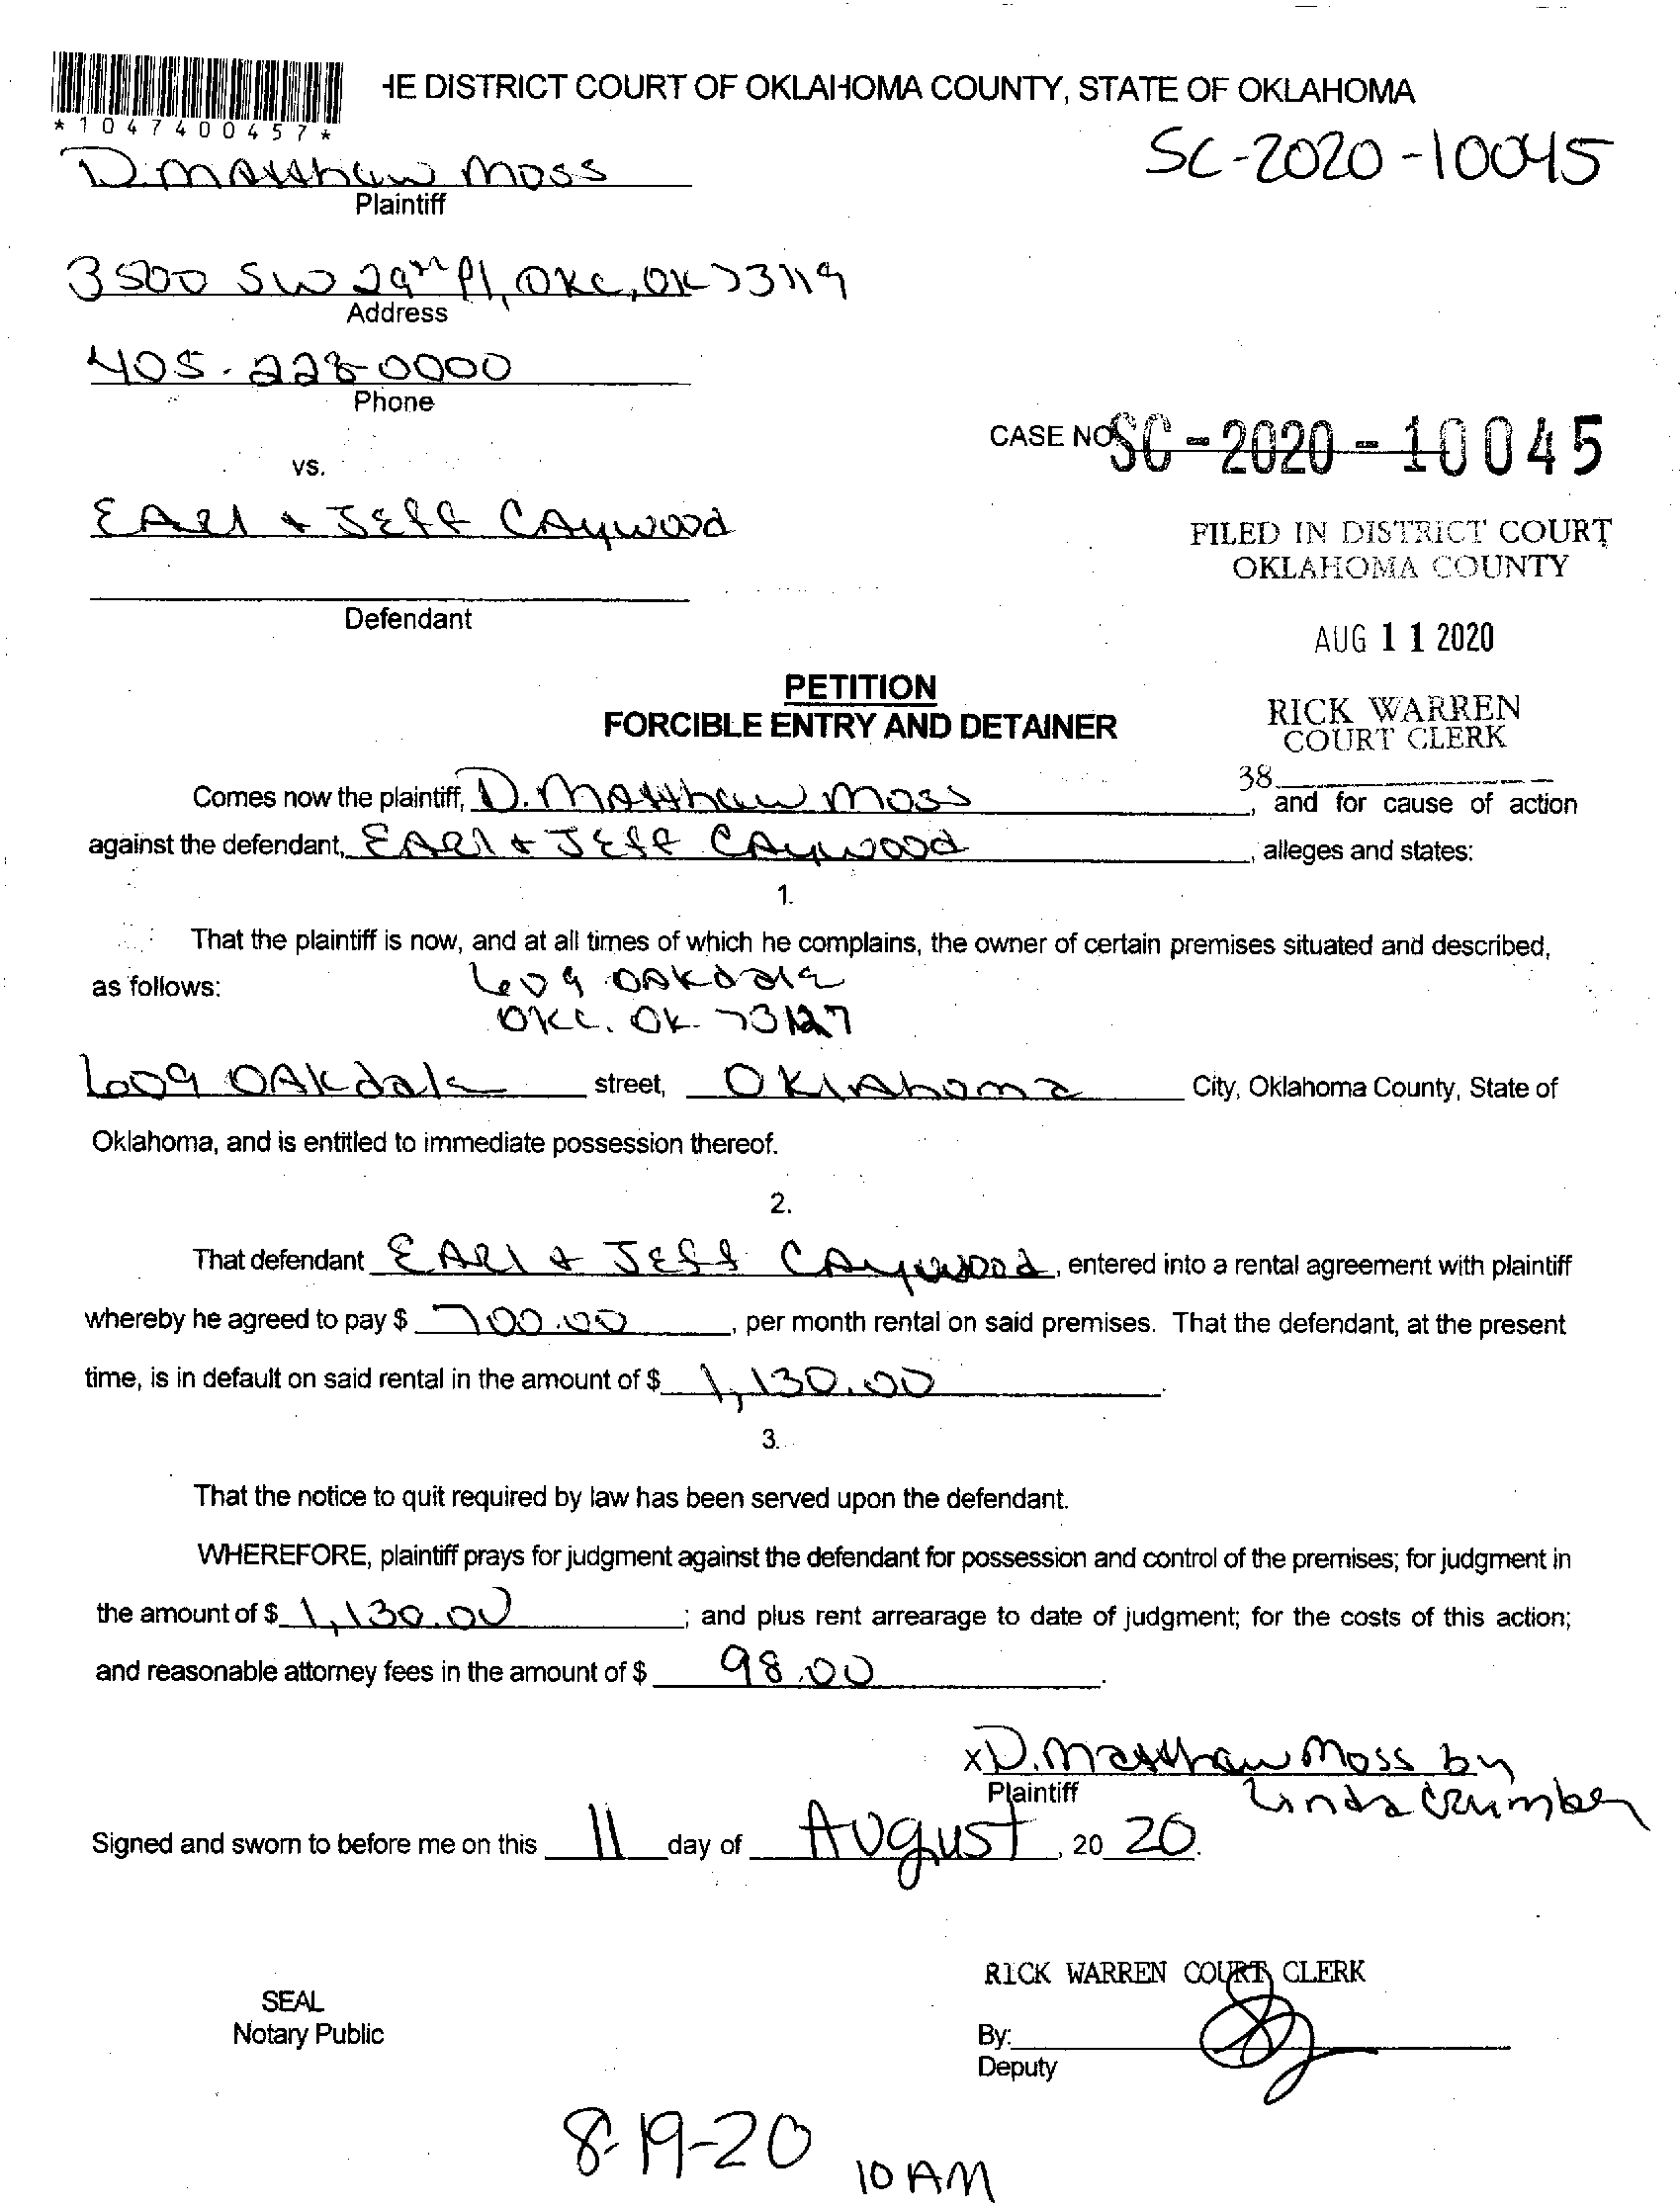 HE DISTRICT COURT OF OKLAHOMA COUNTY, STATE OF OKLAHOMA
*1047400457*
SC-2020-10045
D. Matthew Moss
Plaintiff
3500 SW 29th Pl, OKC, OK 73119
Address
405-228-0000
Phone
CASE NO SC-2020-10045
vs.
EARl + JEff CAywood
FILED IN DISTRICT COURT
OKLAHOMA COUNTY
Defendant
AUG 11 2020
PETITION
FORCIBLE ENTRY AND DETAINER
RICK WARREN
COURT CLERK
38
Comes now the plaintiff, D. Matthew Moss, and for cause of action
against the defendant, EARl + JEff CAywood, alleges and states:
1.
That the plaintiff is now, and at all times of which he complains, the owner of certain premises situated and described,
as follows: 609 OAKdale
OKC. OK. 73127
609 OAKdale street, OKlAhoma City, Oklahoma County, State of
Oklahoma, and is entitled to immediate possession thereof.
2.
That defendant EARl + JEff CAywood, entered into a rental agreement with plaintiff
whereby he agreed to pay $ 700.00, per month rental on said premises. That the defendant, at the present
time, is in default on said rental in the amount of $ 1,130.00.
3.
That the notice to quit required by law has been served upon the defendant.
WHEREFORE, plaintiff prays for judgment against the defendant for possession and control of the premises; for judgment in
the amount of $ 1,130.00; and plus rent arrearage to date of judgment; for the costs of this action;
and reasonable attorney fees in the amount of $ 98.00.
x D. Matthew Moss by
Plaintiff Linda Crumbey
Signed and sworn to before me on this 11 day of August, 20 20.
RICK WARREN COURT CLERK
SEAL
Notary Public
By:
Deputy
8-19-20 10 AM